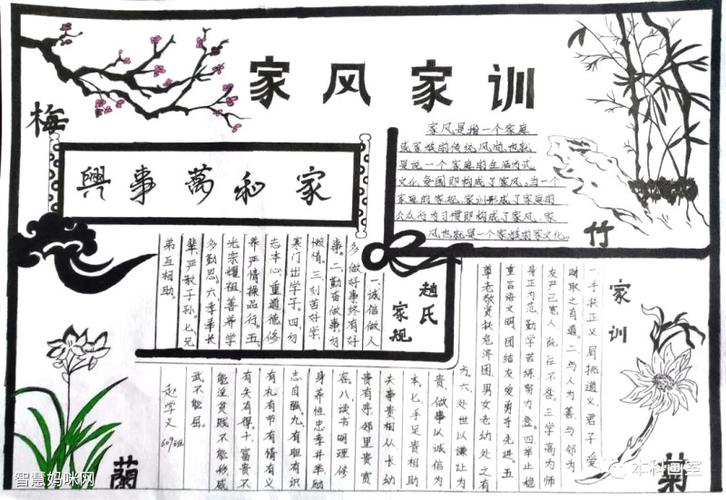 家风家训
梅
家和萬事興
家风是指一个家庭
或家族的传统风尚,也就
是说一个家庭的生活方式、
文化氛围即构成了家风。当一个
家庭的家规、家训形成了家庭的
公众行为习惯即构成了家风,家
风也就是一个家族的家文化。
竹
赵氏
家规
一.诚信做人
多做好事终有好
事。二.勤奋做事,勿
懒惰。三.刻苦好学,
寒门出学子。四.勿
忘本心重道德修
养严情操品行。五.
光宗耀祖善并学
多勤思。六.
辈严教子孙。七.兄
弟互相助。
家训
一.手扶正义,肩挑道义,君子爱
财取之有道。二.与人为善,与邻为
友严己宽人,既往不咎。三.学高为师
身正为范,勤学苦练努力登。四.举止稳
重言语文明,团结友爱勇争先进。五.
尊老敬贤扶危济困,男女老幼处之有
方。六.处世以谦让为
贵,做事以诚信为
本。七.手足贵相助
夫妻贵相从,长幼
贵有序,邻里贵宽
容。八.读书明理,修
身养性,忠孝并举,励
志自强。九.有胆有识
有礼有节,有情有义
有失有得。十.富贵不
能淫贫贱不能移威
武不能屈。
赵学义
607班
蘭
菊
智慧妈咪网
本科画室